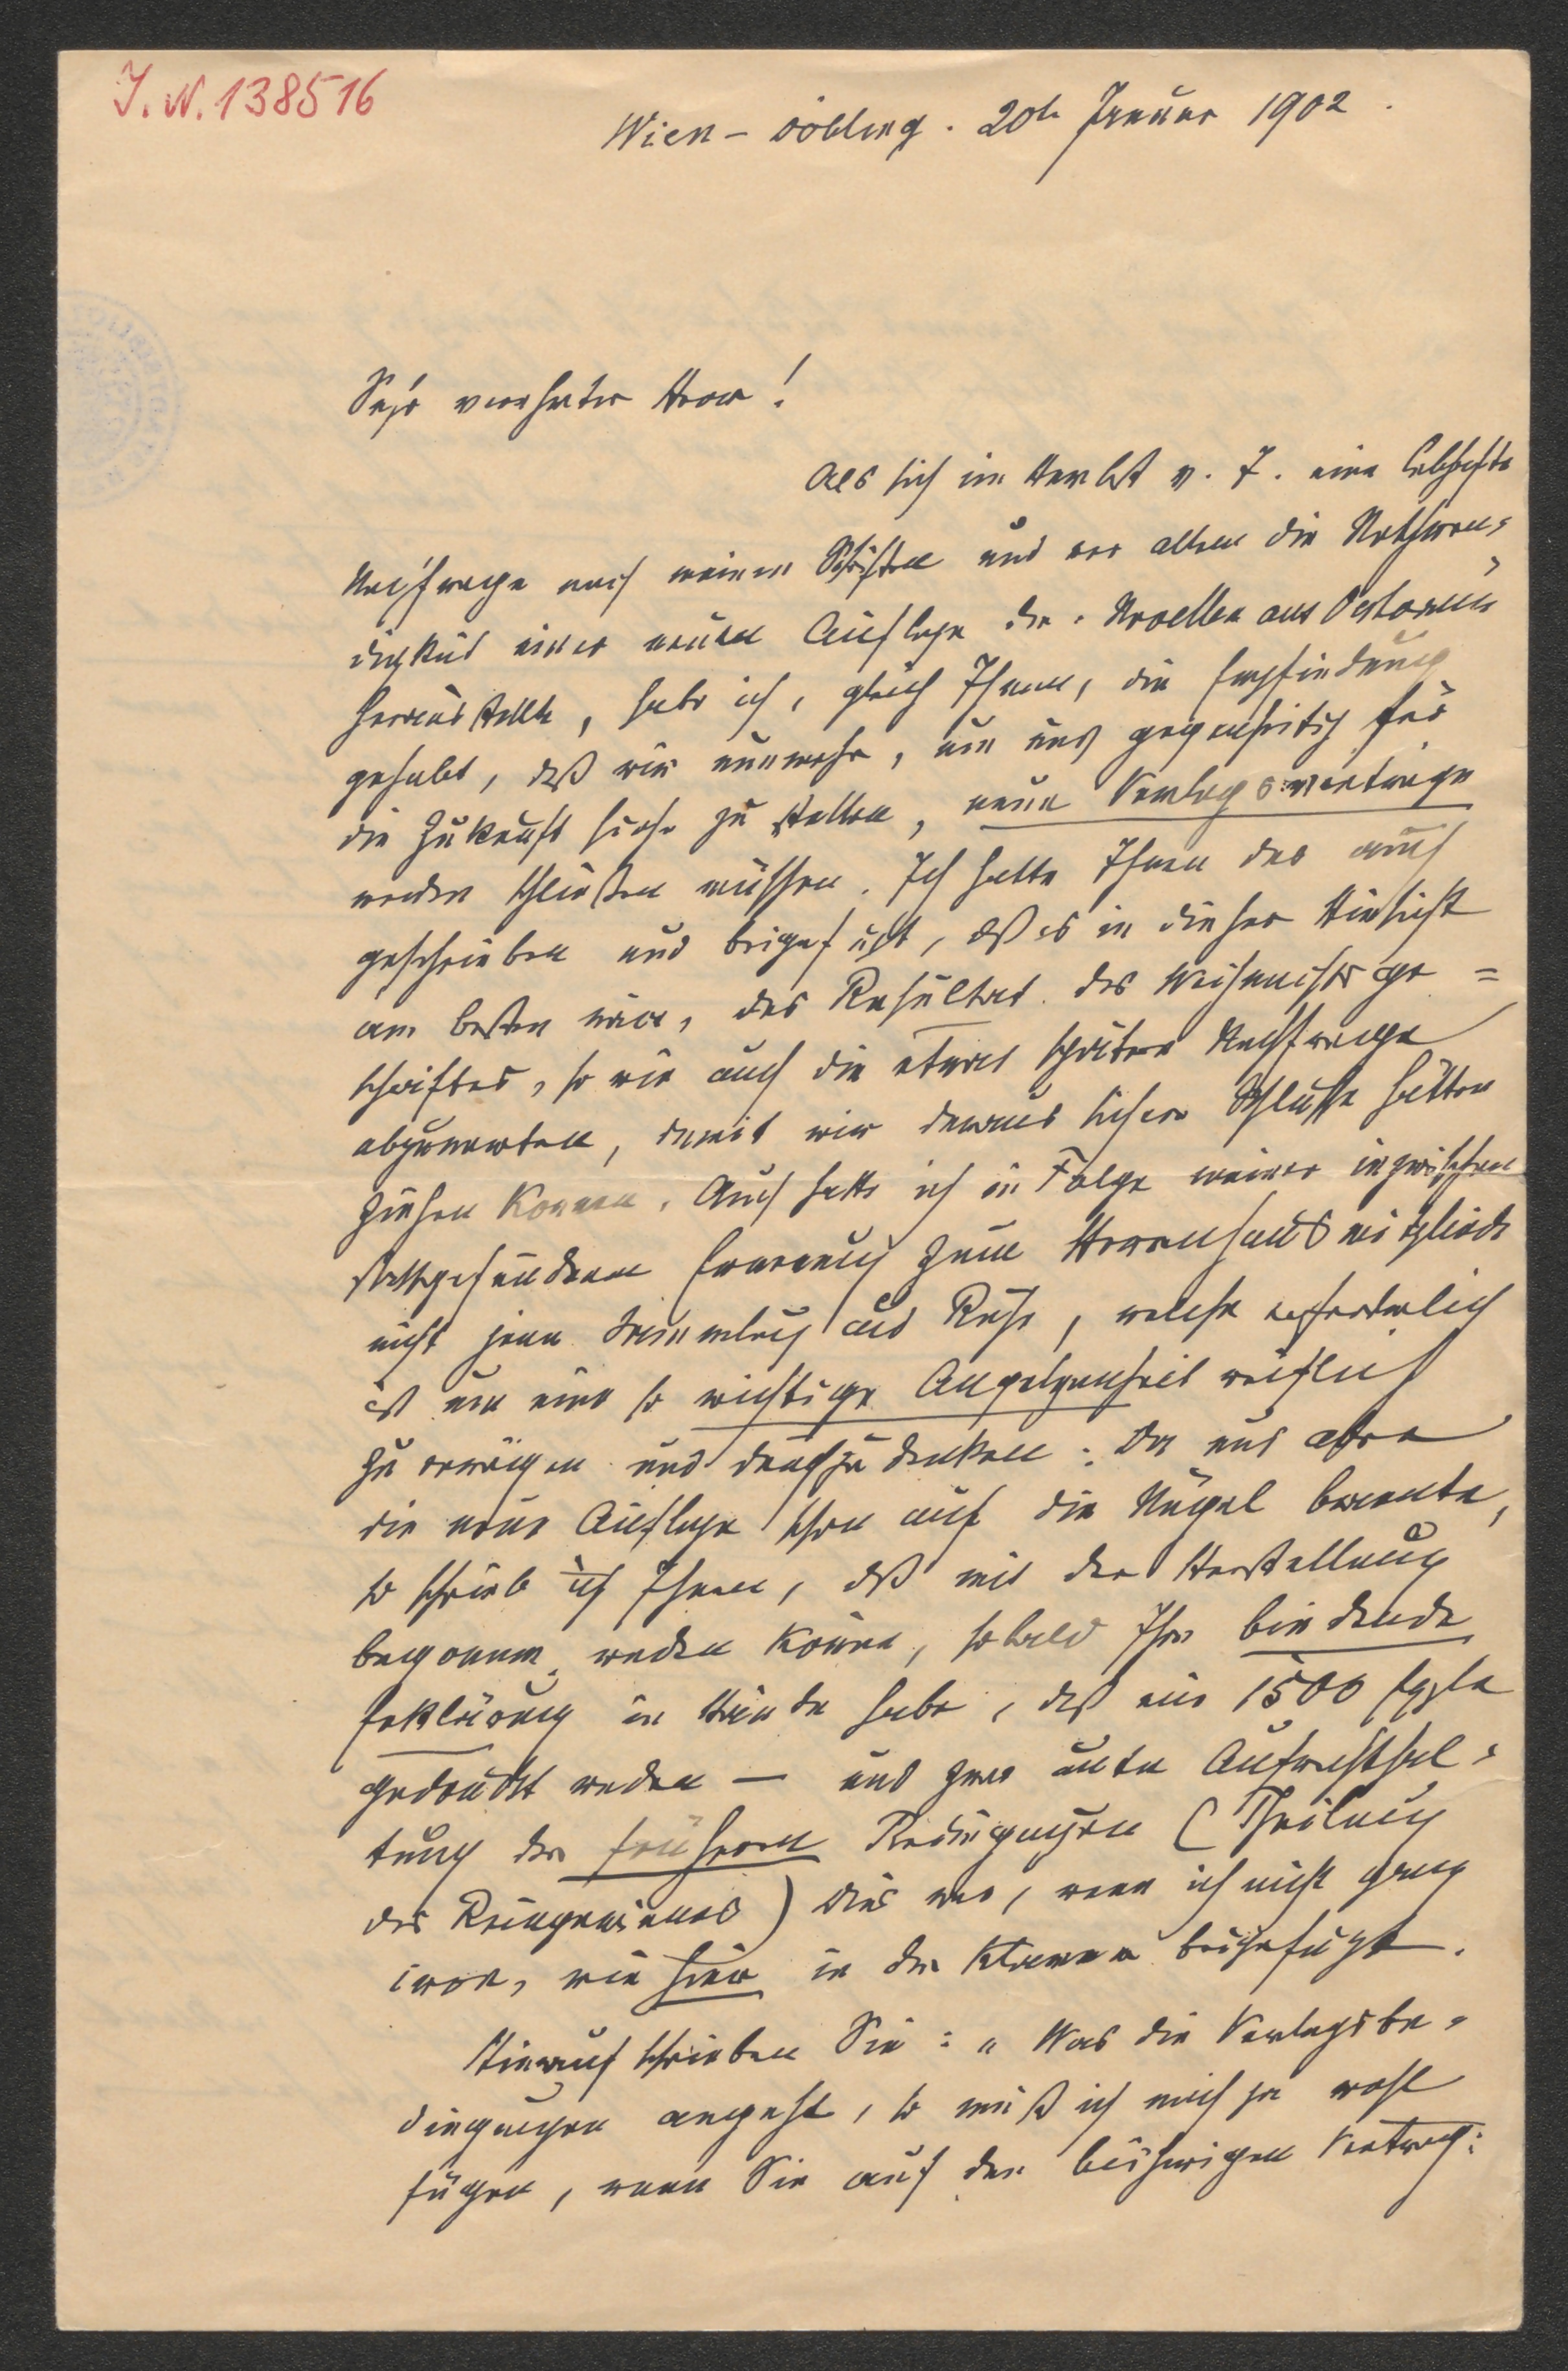 J. N. 138516
Wien - Döbling. 20t. Januar 1902.
Sehr verehrter Herr!
Als sich im Herbst v. J. eine lebhafte
Nachfrage nach meinen Schriften und vor allem die Nothwen-
digkeit einer neuen Auflage der „Novellen aus Oesterreich
herausstellte, habe ich, gleich Ihnen, die Empfindung
gehabt, daß wir nunmehr, um uns gegenseitig für
die Zukunft sicher zu stellen, neue Verlagsverträge
werden schließen müssen. Ich hatte Ihnen das auch
geschrieben und beigefügt, daß es in dieser Hinsicht
am besten wäre, das Resultat des Weihnachtsge=
schäftes, so wie auch die etwas spätere Nachfrage
abzuwarten, damit wir daraus sichere Schlüsse hätten
ziehen können. Auch hatte ich in Folge meiner inzwischen
stattgefundenen Ernennung zum Herrenhausmitgliede
nicht jene Sammlung und Ruhe, welche erforderlich
ist um eine so wichtige Angelegenheit reiflich
zu erwägen und durchzudenken. Da uns aber
die neue Auflage schon auf die Nägel brannte,
so schrieb ich Ihnen, daß mit der Herstellung
begonnen werden könne, sobald Ihre bindende
Erklärung in Händen habe, daß nur 1500 Exple
gedruckt werden — und zwar unter Aufrechthal-
tung der früheren Bedingungen (Theilung
des Reingewinnes) Dies war, wenn ich nicht ganz
irre, wie hier in der Klammer beigefügt.
Hierauf schrieben Sie: „Was die Verlagsbe-
dingungen angeht, so muß ich mich ja wohl
fügen, wenn Sie auf den bisherigen Vertrag: